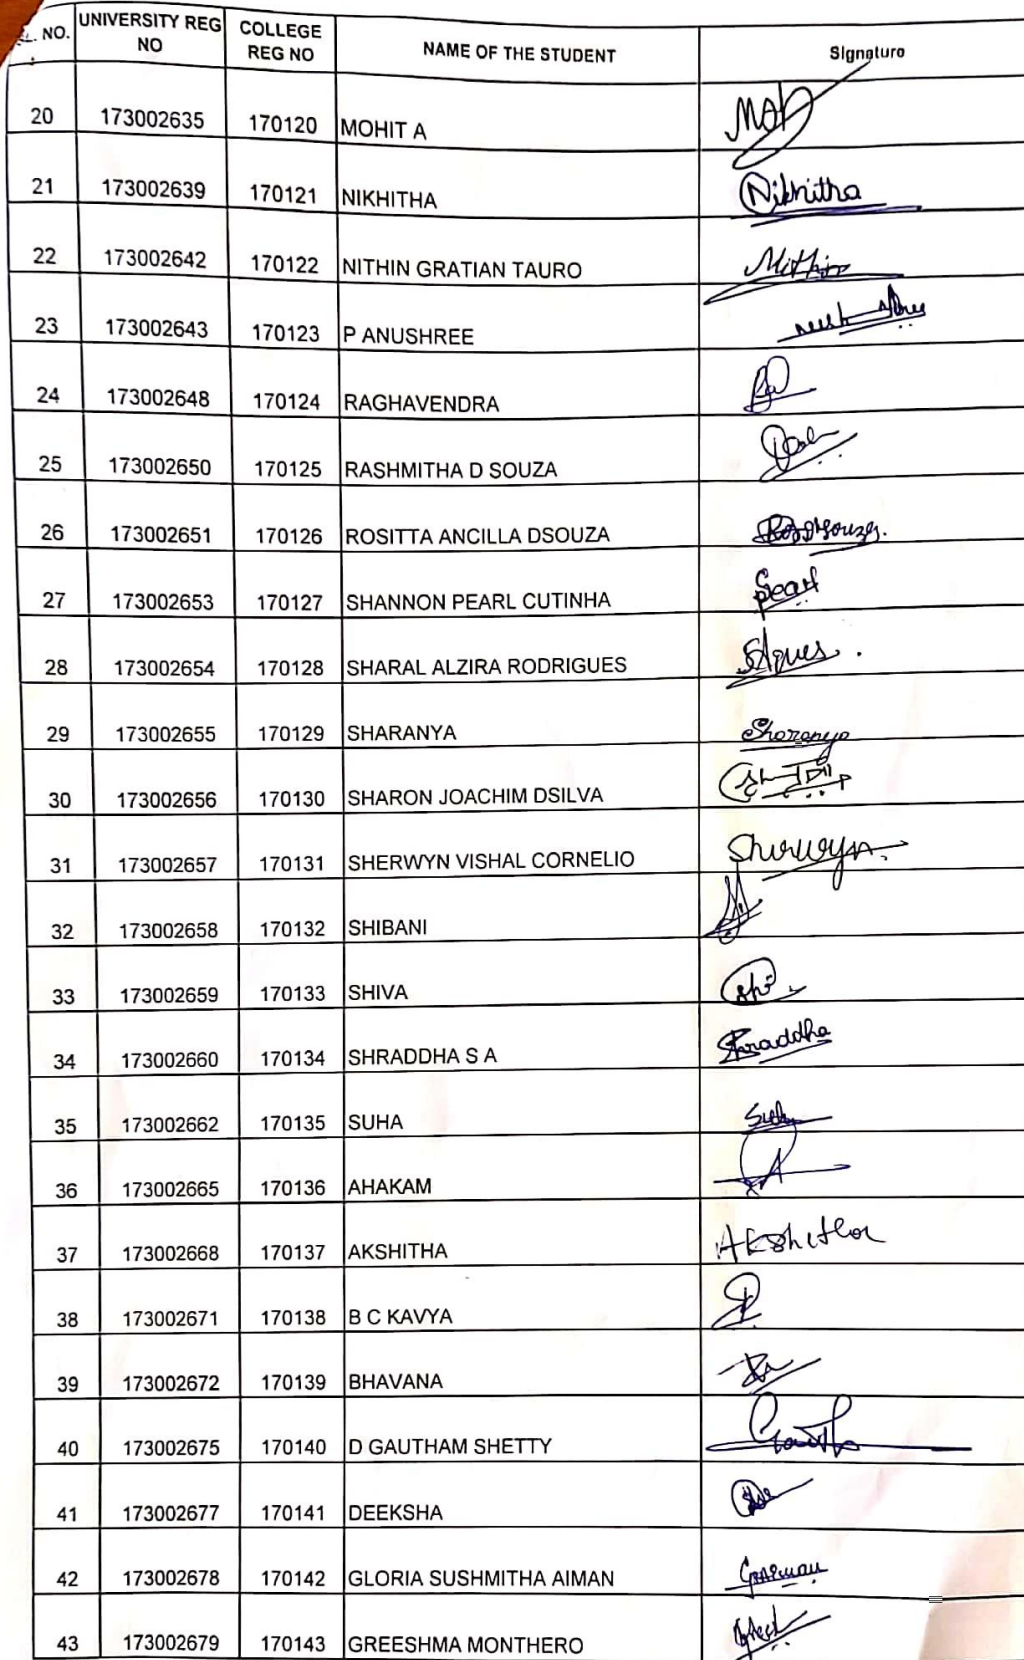 NO. UNIVERSITY REG NO COLLEGE REG NO NAME OF THE STUDENT Signature
20 173002635 170120 MOHIT A
21 173002639 170121 NIKHITHA Nikhitha
22 173002642 170122 NITHIN GRATIAN TAURO Nithin
23 173002643 170123 P ANUSHREE
24 173002648 170124 RAGHAVENDRA
25 173002650 170125 RASHMITHA D SOUZA
26 173002651 170126 ROSITTA ANCILLA DSOUZA
27 173002653 170127 SHANNON PEARL CUTINHA Pearl
28 173002654 170128 SHARAL ALZIRA RODRIGUES
29 173002655 170129 SHARANYA Sharanya
30 173002656 170130 SHARON JOACHIM DSILVA
31 173002657 170131 SHERWYN VISHAL CORNELIO Sherwyn.
32 173002658 170132 SHIBANI
33 173002659 170133 SHIVA
34 173002660 170134 SHRADDHA S A Shraddha
35 173002662 170135 SUHA Suha
36 173002665 170136 AHAKAM
37 173002668 170137 AKSHITHA Akshitha
38 173002671 170138 B C KAVYA
39 173002672 170139 BHAVANA
40 173002675 170140 D GAUTHAM SHETTY
41 173002677 170141 DEEKSHA
42 173002678 170142 GLORIA SUSHMITHA AIMAN
43 173002679 170143 GREESHMA MONTHERO